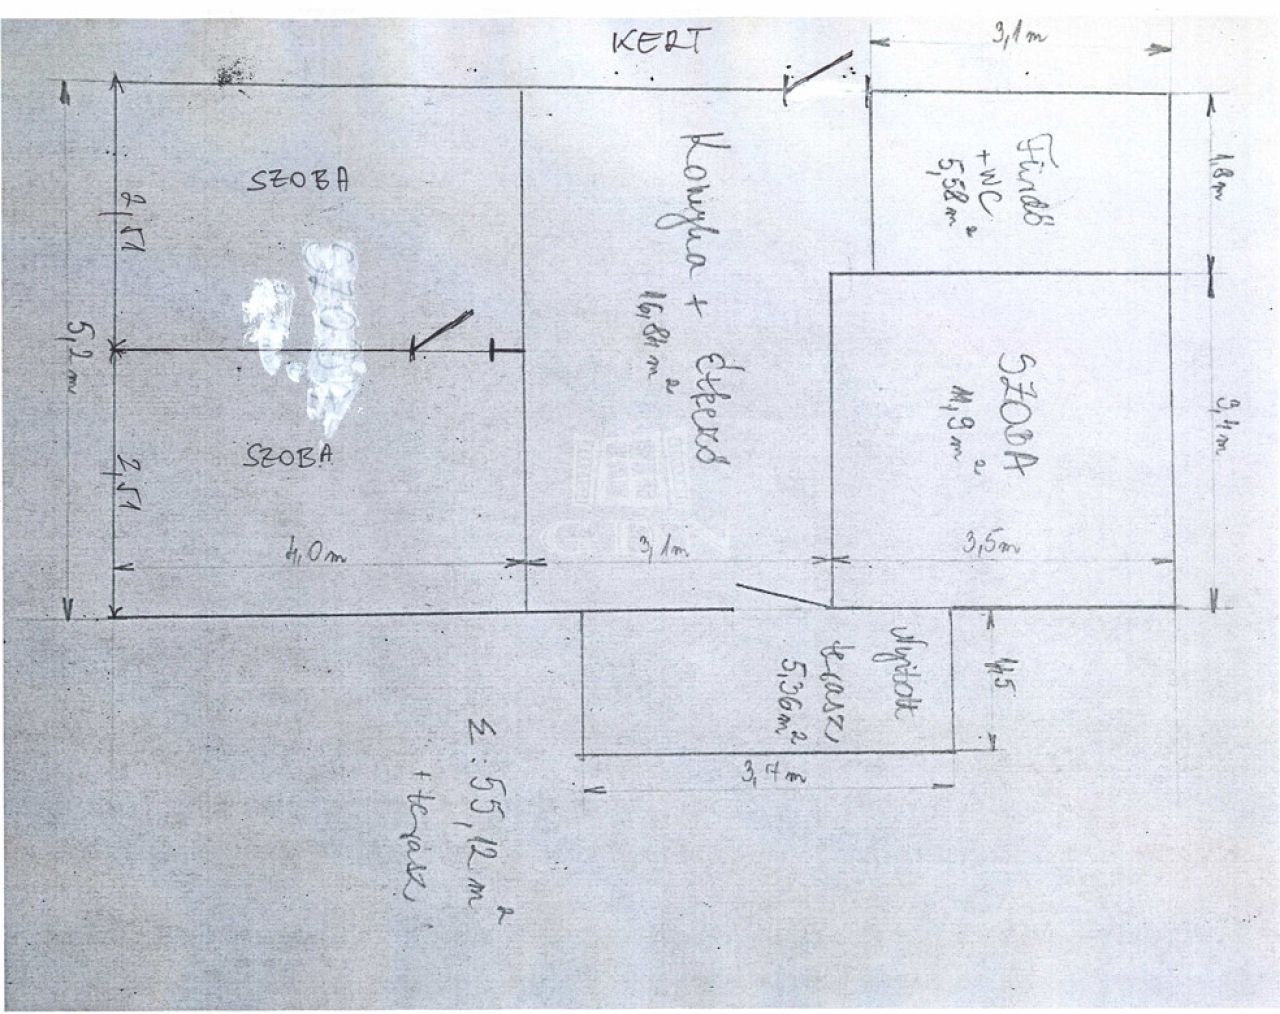 KERT
3,1m
SZOBA
2,51
5,2m
SZOBA
2,51
4,0m
Konyha + Étkező
16,84m²
3,1m
Fürdő
+WC
5,58m²
1,8m
SZOBA
11,9m²
3,4m
3,5m
Nyitott
terasz
5,36m²
1,45
3,7m
Σ: 55,12m²
+ terasz